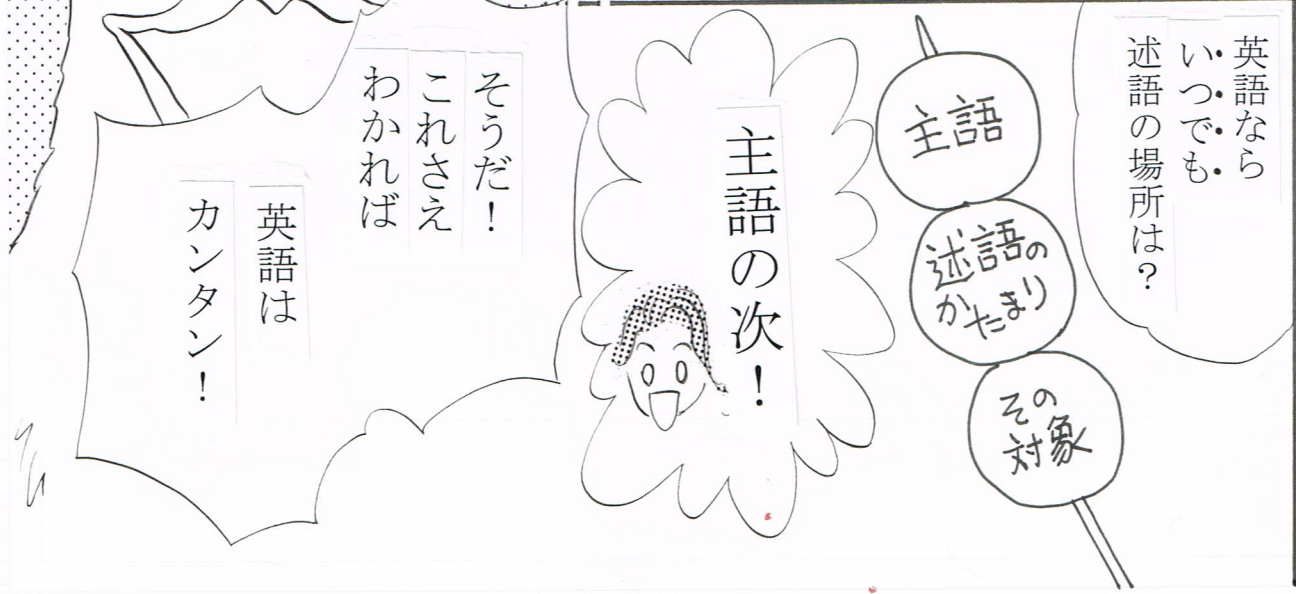 英語なら
いつでも
述語の場所は？
主語
述語の
かたまり
その
対象
主語の次！
そうだ！
これさえ
わかれば
英語は
カンタン！